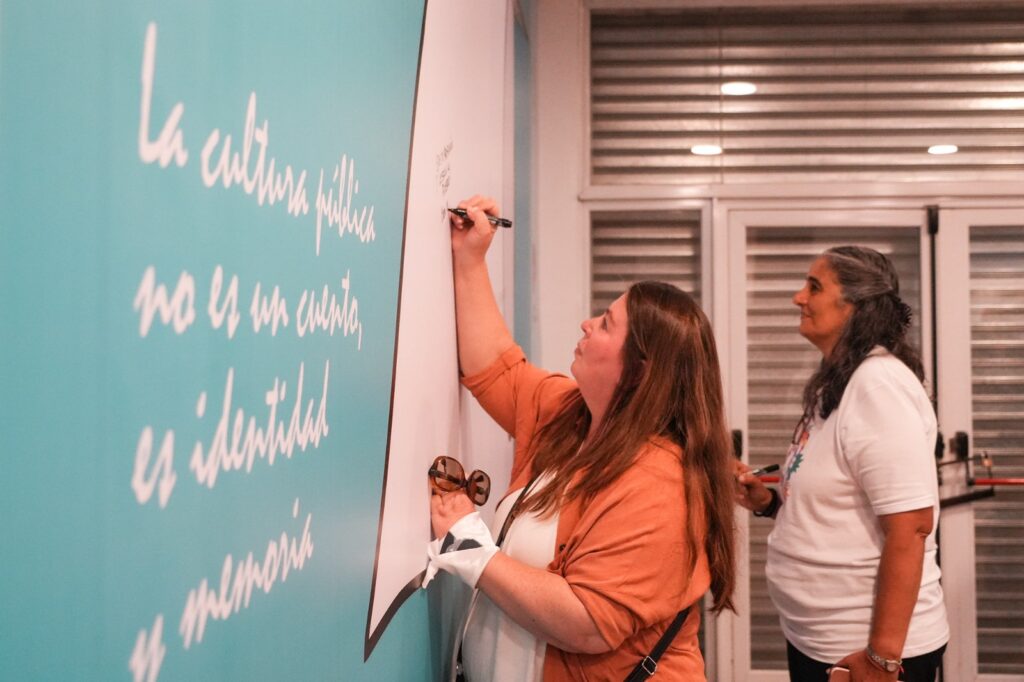 La cultura pública
no es un cuento,
es identidad
y memoria